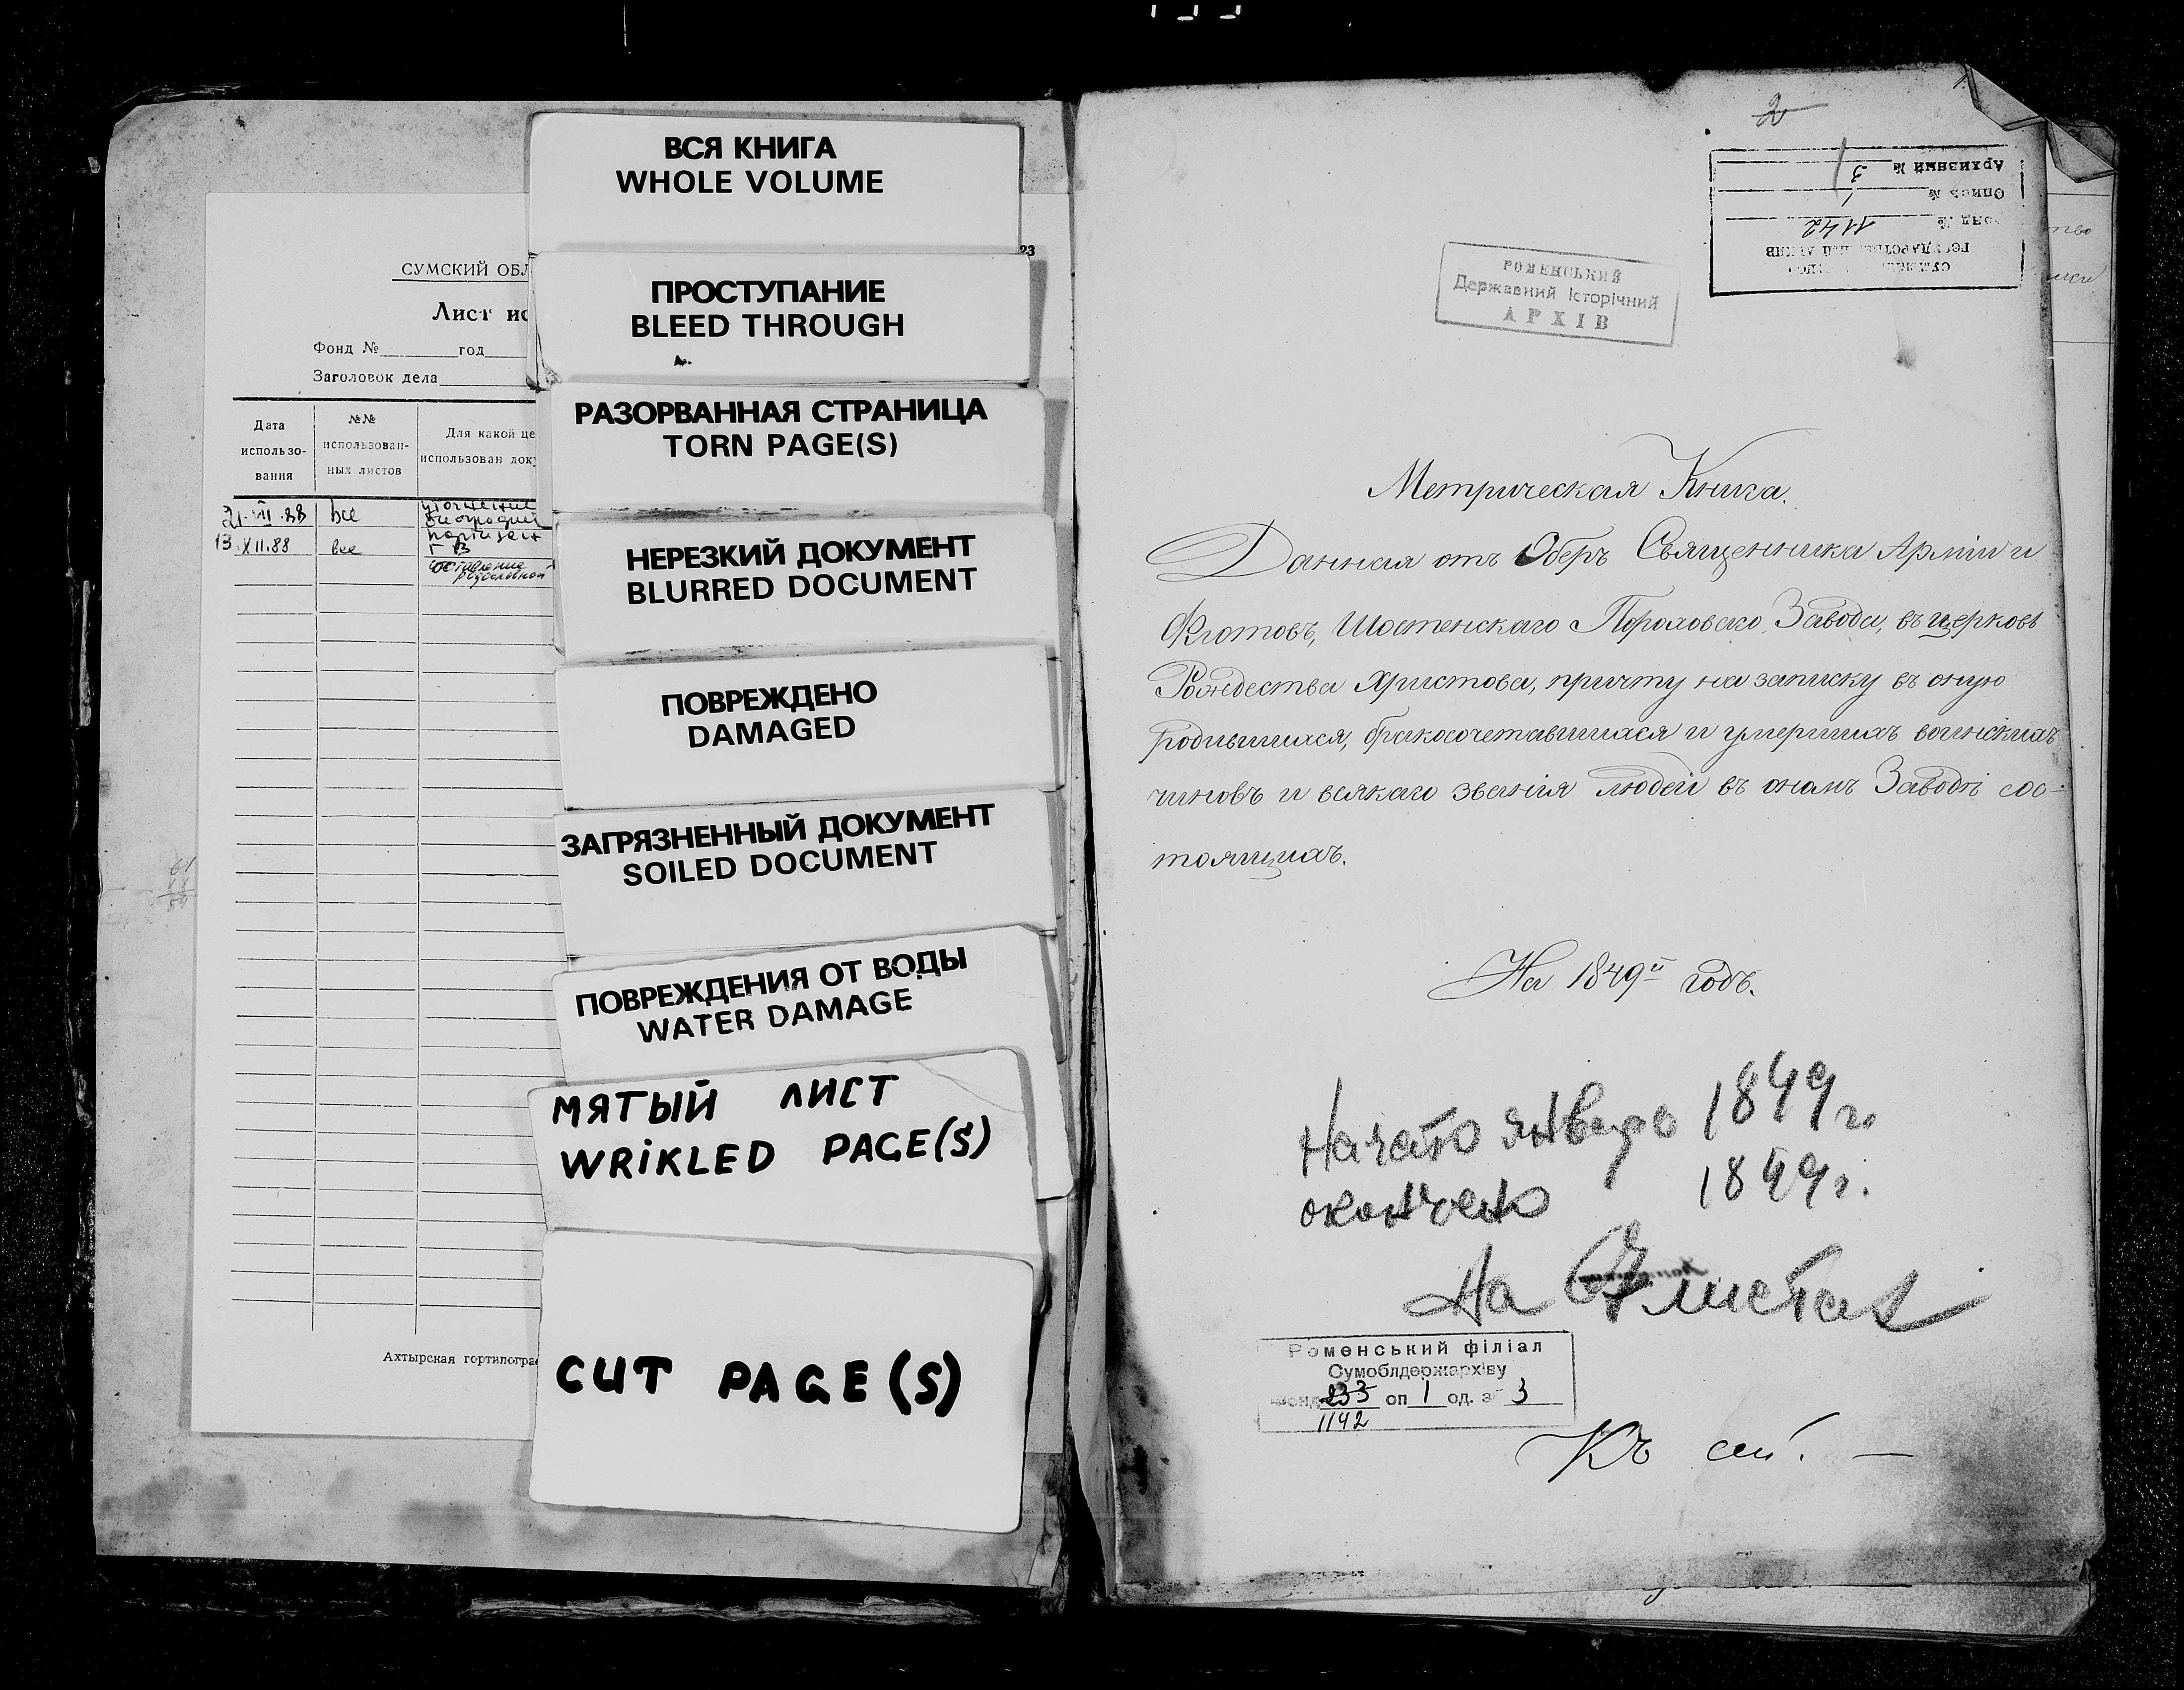 СУМСКИЙ ОБЛ
Лист ис
Фонд № год
Заголовок дела
Дата использо-вания
№№ использован-ных листов
Для какой це
использован доку
21.VII.88 все уточнение биографии
13.XII.88 все
составление родословной
Ахтырская гортипогра
23
ВСЯ КНИГА
WHOLE VOLUME
ПРОСТУПАНИЕ
BLEED THROUGH
РАЗОРВАННАЯ СТРАНИЦА
TORN PAGE(S)
НЕРЕЗКИЙ ДОКУМЕНТ
BLURRED DOCUMENT
ПОВРЕЖДЕНО
DAMAGED
ЗАГРЯЗНЕННЫЙ ДОКУМЕНТ
SOILED DOCUMENT
ПОВРЕЖДЕНИЯ ОТ ВОДЫ
WATER DAMAGE
МЯТЫЙ ЛИСТ
WRIKLED PAGE(S)
CUT PAGE(S)
2
Архивный № 3
Опись № 1
Фонд № 1142
РОМЕНСЬКИЙ
Державний Історічний
АРХІВ
Метрическая Книга.
Данная отъ Оберъ Священника Арміи и
Флотовъ, Шостенскаго Пороховаго Завода, въ церковь
Рождества Христова, причту на записку въ оную
родившихся, бракосочетавшихся и умершихъ воинскихъ
чиновъ и всякаго званія людей въ ономъ Заводѣ сос-
тоящихъ.
На 1849й годъ.
Начато января 1849 г.
окончено 1849 г.
На листах
Роменський філіал
Сумоблдержархіву
фонд 233 оп 1 од. зб 3
1142
Къ